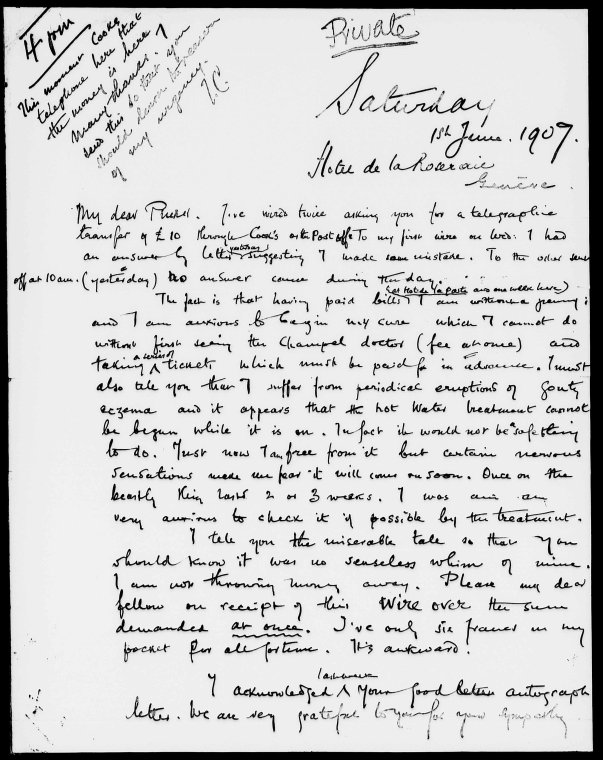 4 pm
This moment Cooks
telephone here that
the money is here
Many thanks. I
send this so that you
should know the reason
of my urgency.
J.C.
Private
Saturday
1st June. 1907.
Hotel de la Roseraie
Genève.
My dear Pinker. I've wired twice asking you for a telegraphic
transfer of £10 through Cook's or the Post office To my first wire on Wed: I had
an answer by letter yesterday suggesting I made some mistake. To the other sent
off at 10 am. (yesterday) no answer came during the day.
The fact is that having paid bills (at Hotel de la Poste and one week here) I am without a penny
and I am anxious to begin my cure which I cannot do
without first seeing the Champel doctor (fee at once) and
taking a series of tickets which must be paid for in advance. I must
also tell you that I suffer from periodical eruptions of gouty
eczema and it appears that the hot water treatment cannot
be begun while it is on. In fact it would not be a safe thing
to do. Just now I am free from it but certain nervous
sensations make me fear it will come on soon. Once on the
beastly thing lasts 2 or 3 weeks. I was and am
very anxious to check it if possible by the treatment.
I tell you the miserable tale so that you
should know it was no senseless whim of mine.
I am not throwing money away. Please my dear
fellow on receipt of this wire over the sum
demanded at once. I've only six francs in my
pocket for all fortune. It's awkward.
I acknowledged your good letter autograph
letter. We are very grateful to you for your sympathy